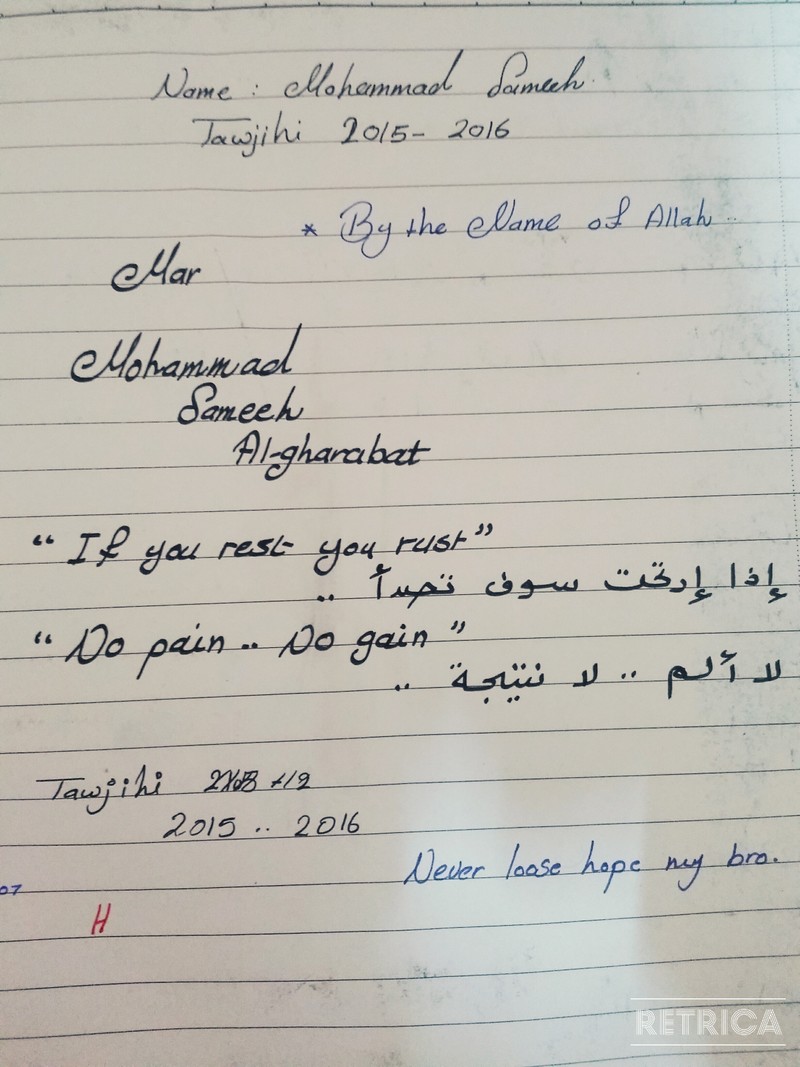 Name : Mohammad Sameeh.
Tawjihi 2015- 2016
* By the Name of Allah..
Mar
Mohammad
Sameeh
Al-gharabat
“ If you rest you rust ”
إذا إرتحت سوف تصدأ ..
“ No pain .. No gain ”
لا ألم .. لا نتيجة ..
Tawjihi
2015 .. 2016
Never loose hope my bro.
07
H
RETRICA